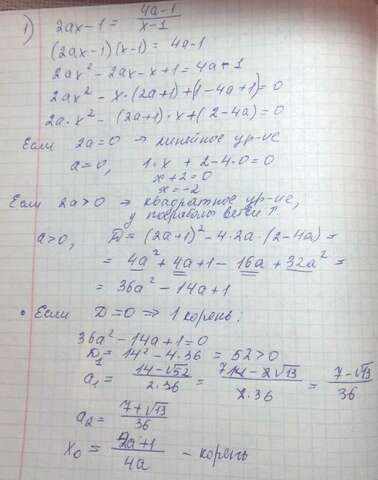 1) 2ax - 1 = (4a-1)/(x-1)
(2ax-1)(x-1) = 4a-1
2ax² - 2ax - x + 1 = 4a - 1
2ax² - x·(2a+1) + (1-4a+1) = 0
2a·x² - (2a+1)·x + (2-4a) = 0
Если 2a=0 → линейное ур-ие
a=0, 1·x + 2-4·0 = 0
x+2=0
x=-2
Если 2a>0 → квадратное ур-ие,
у параболы ветви ↑
a>0, D = (2a+1)² - 4·2a·(2-4a) =
= 4a² + 4a + 1 - 16a + 32a² =
= 36a² - 14a + 1
• Если D=0 ⇒ 1 корень:
36a² - 14a + 1 = 0
D₁ = 14² - 4·36 = 52 > 0
a₁ = (14-√52)/(2·36) = (14-2√13)/(2·36) = (7-√13)/36
a₂ = (7+√13)/36
x₀ = (2a+1)/4a - корень